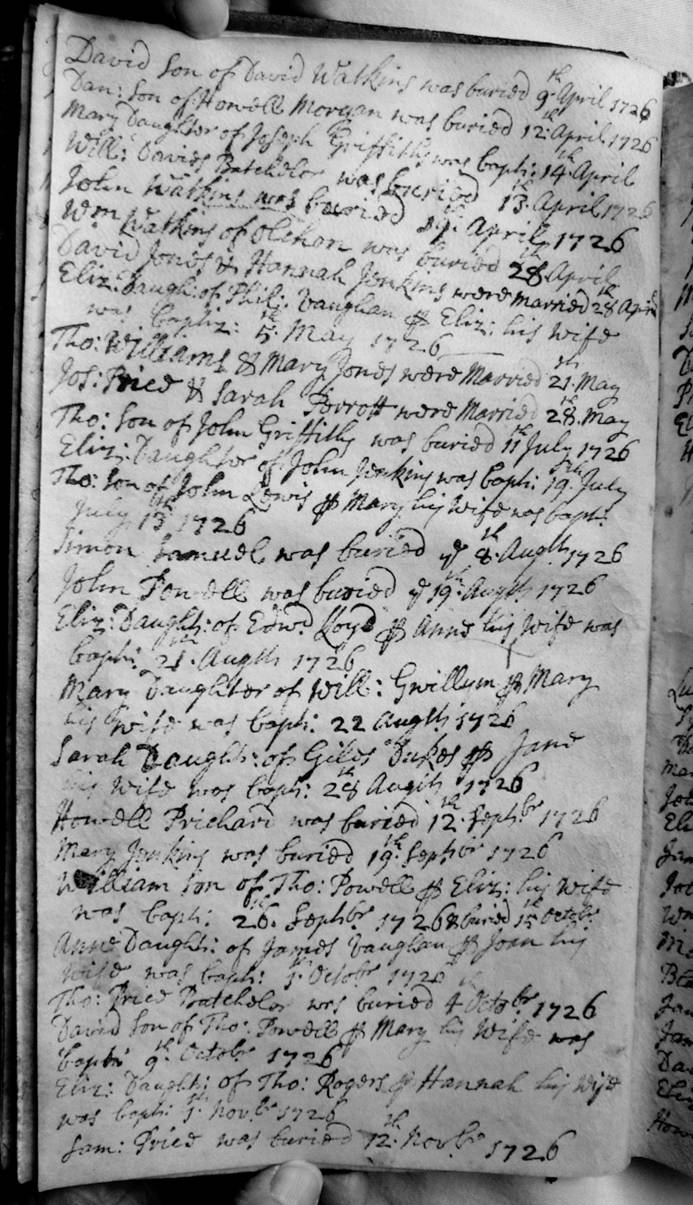 David Son of David Watkins was buried 9th April 1726
Dan: Son of Howell Morgan was buried 12th April 1726
Mary Daughter of Joseph Griffiths was bapt: 14th April
Will: Davies Batchelor was buried 13th April 1726
John Watkins was buried 19th April 1726
Wm Watkins of Olchon was buried 28 April
David Jones & Hannah Jenkins were Married 28th April
Eliz: Daugh: of Phil: Vaughan & Eliz: his wife
was baptiz: 5th May 1726
Tho: Williams & Mary Jones were Married 21st May
Jos: Price & Sarah Parrott were Married 28th May
Tho: Son of John Griffiths was buried 11th July 1726
Eliz: Daughter of John Jenkins was bapt: 19th July
Tho: Son of John Lewis & Mary his Wife was bapt:
July 13th 1726
Simon Samuel was buried ye 8th Augth 1726
John Powell was buried ye 19th Augth 1726
Eliz: Daught: of Edwd Lloyd & Anne his Wife was
bapt: 21st Augth 1726
Mary Daughter of Will: Gwillym & Mary
his Wife was bapt: 22 Augth 1726
Sarah Daught: of Giles Dukes & Jane
his Wife was bapt: 28th Augth 1726
Howell Prichard was buried 12th Septbr 1726
Mary Jenkins was buried 19th Septbr 1726
William Son of Tho: Powell & Eliz: his Wife
was bapt: 26th Septbr 1726 & buried 15th Octobr
Anne Daught: of James Vaughan & Joan his
Wife was bapt: 1st Octobr 1726
Tho: Price Batchelor was buried 4 Octobr 1726
David Son of Tho: Powell & Mary his Wife was
bapt: 9th Octobr 1726
Eliz: Daught: of Tho: Rogers & Hannah his Wife
was bapt: 1st Novbr 1726
Sam: Price was buried 12th Novbr 1726